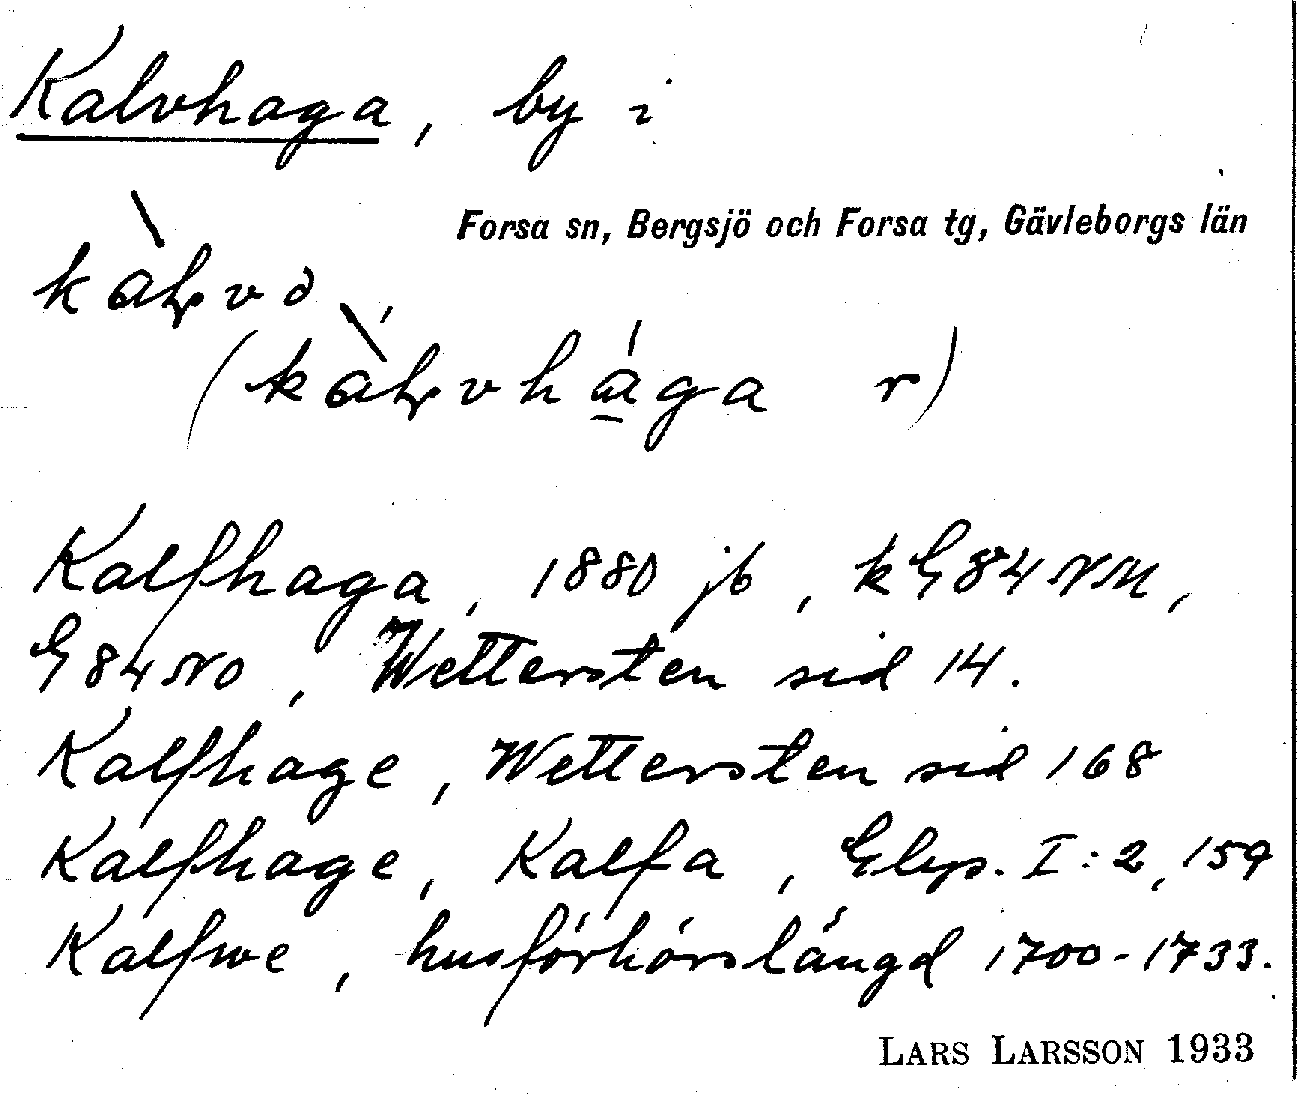 Kalvhaga, by i
Forsa sn, Bergsjö och Forsa tg, Gävleborgs län
Kalfhaga, 1880 jb, k G84NM,
G84NO, Wettersten sid 14.
Kalfhage, Wettersten sid 168
Kalfhage, Kalfa, I:2, 159
Kalfwe, husförhörslängd 1700-1733.
LARS LARSSON 1933